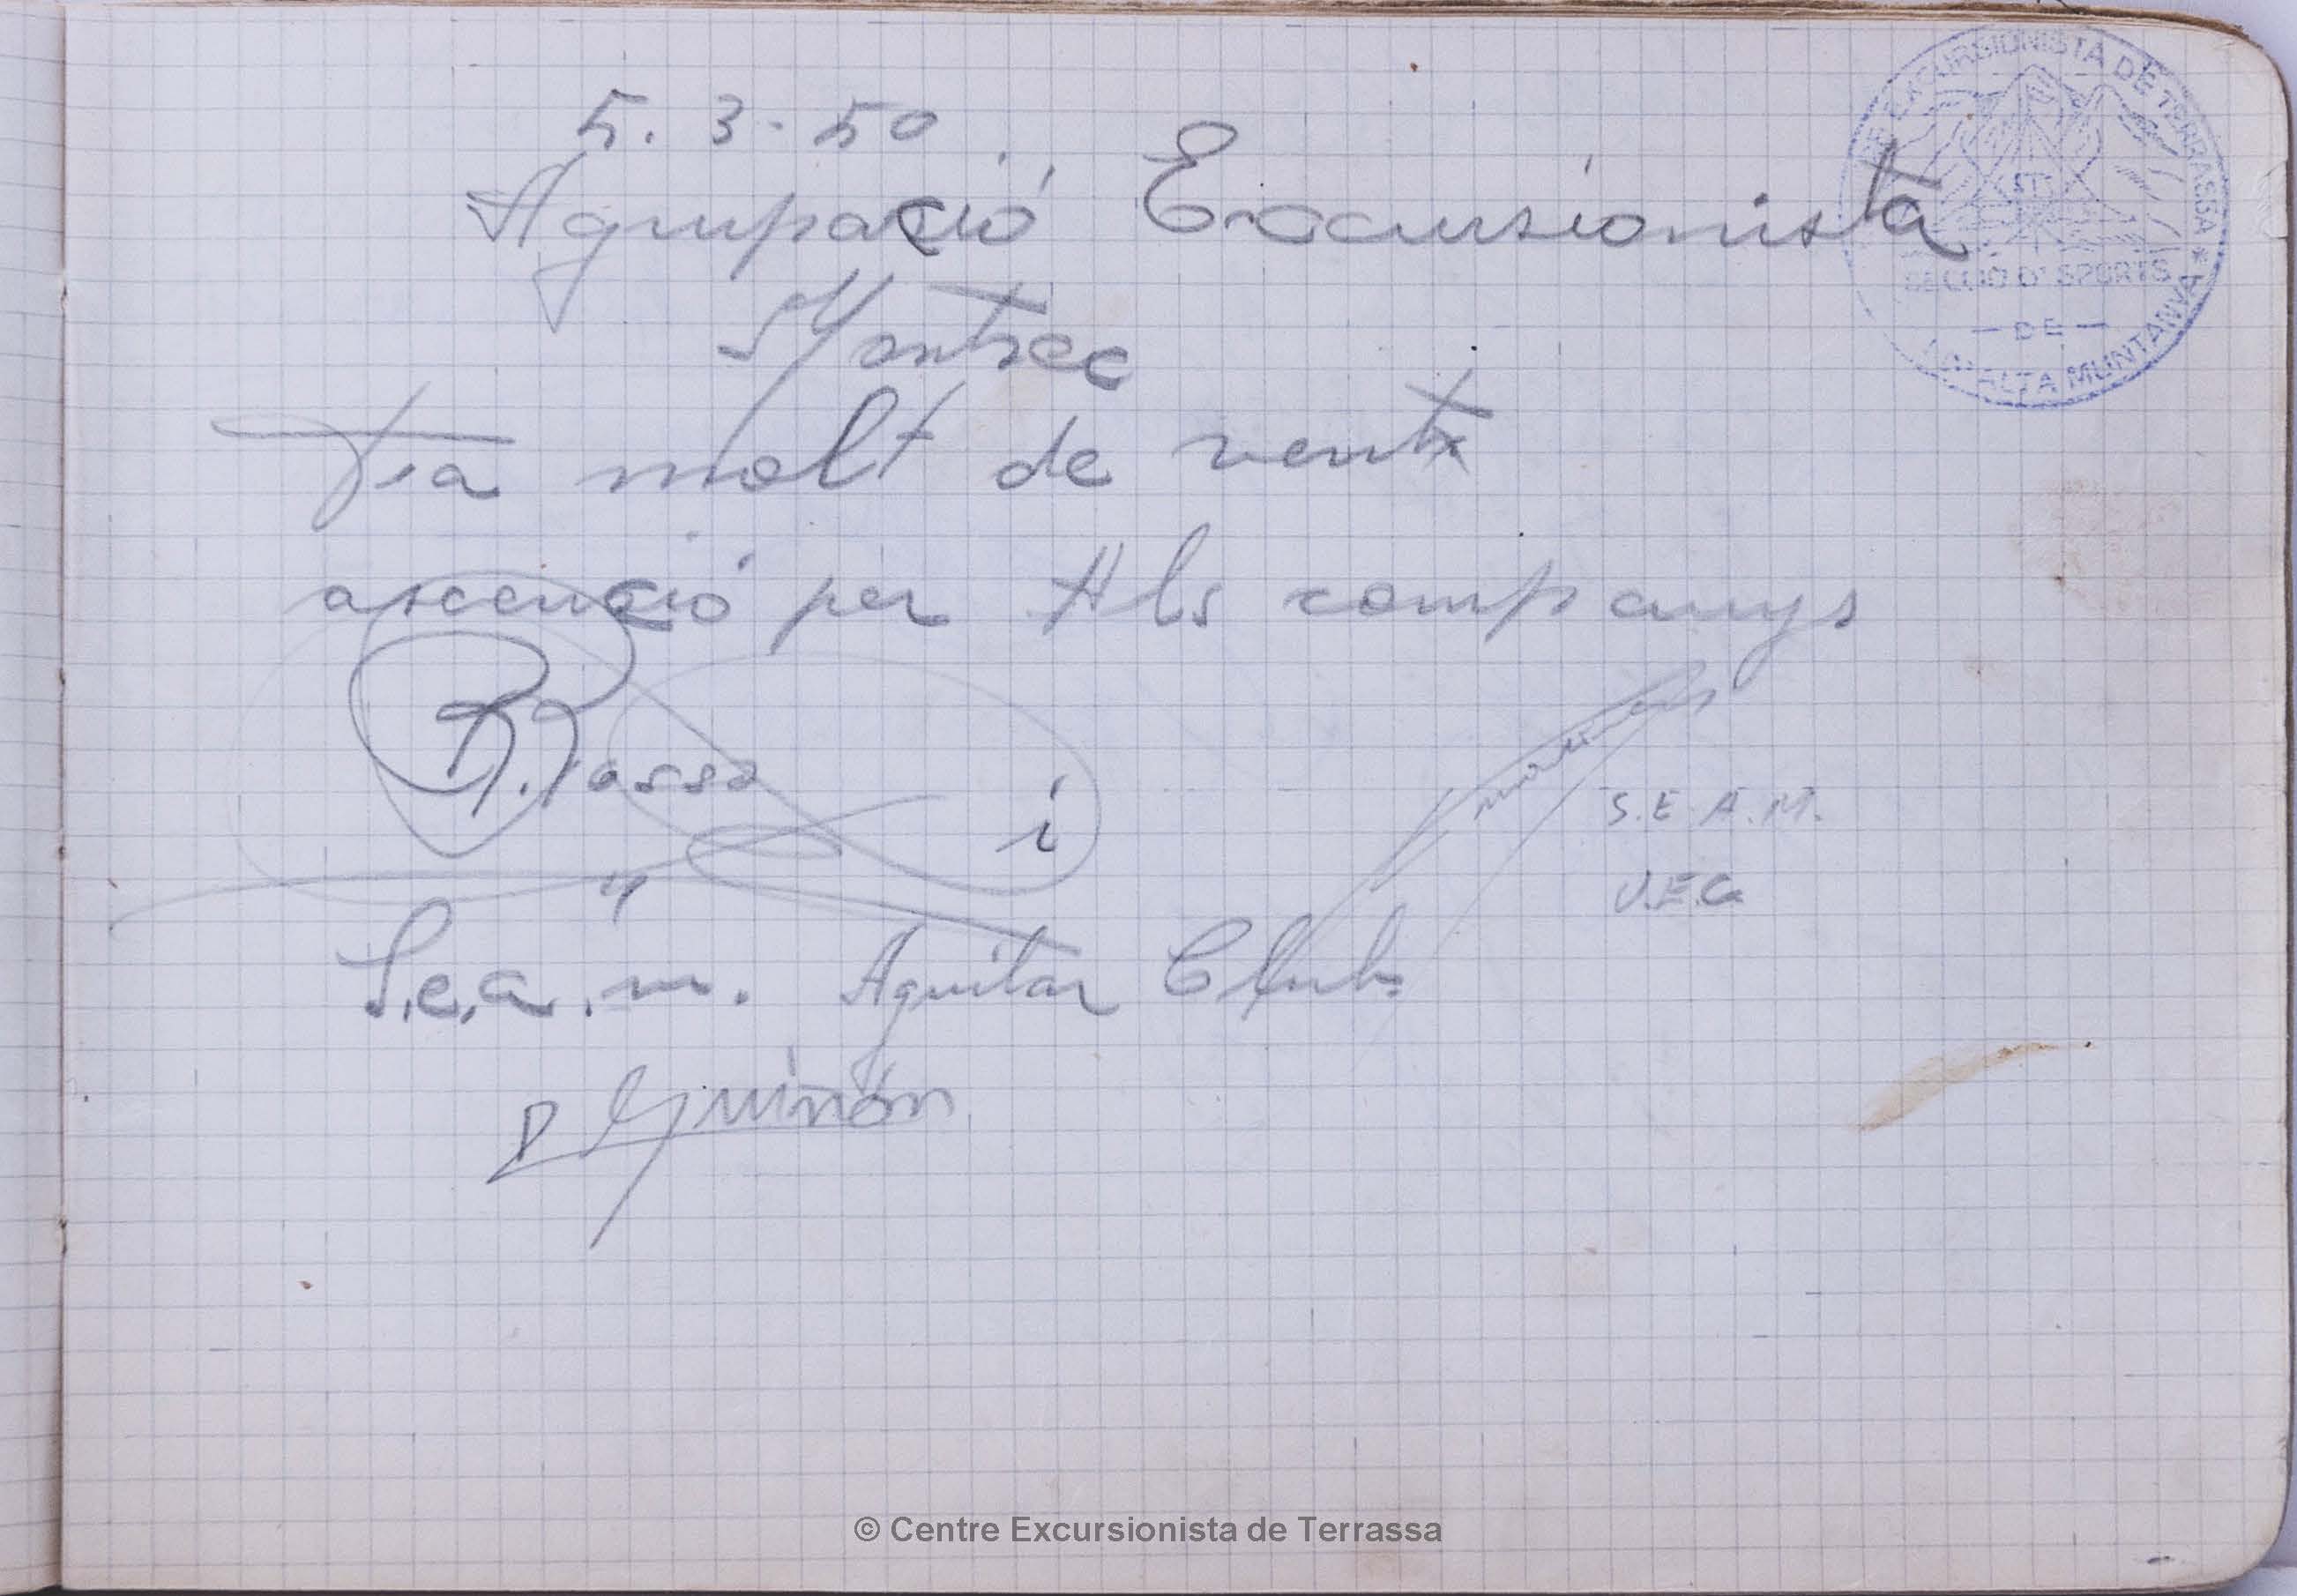 5. 3. 50
Agrupació Excursionista
Montsec
Fa molt de vent
ascenció per Als companys
R. Massó
i
S.E.A.M.
U.E.C.
S.e.a.m. Aguilar Club
P Guiñón
CENTRE EXCURSIONISTA DE TERRASSA *
ST
SECCIO D'ESPORTS
— DE —
L'ALTA MUNTANYA
© Centre Excursionista de Terrassa